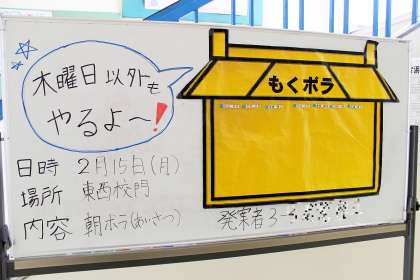 木曜日以外も
やるよ〜!
もくボラ
日時 2月15日(月)
場所 東西校門
内容 朝ボラ(あいさつ)
発案者 3-